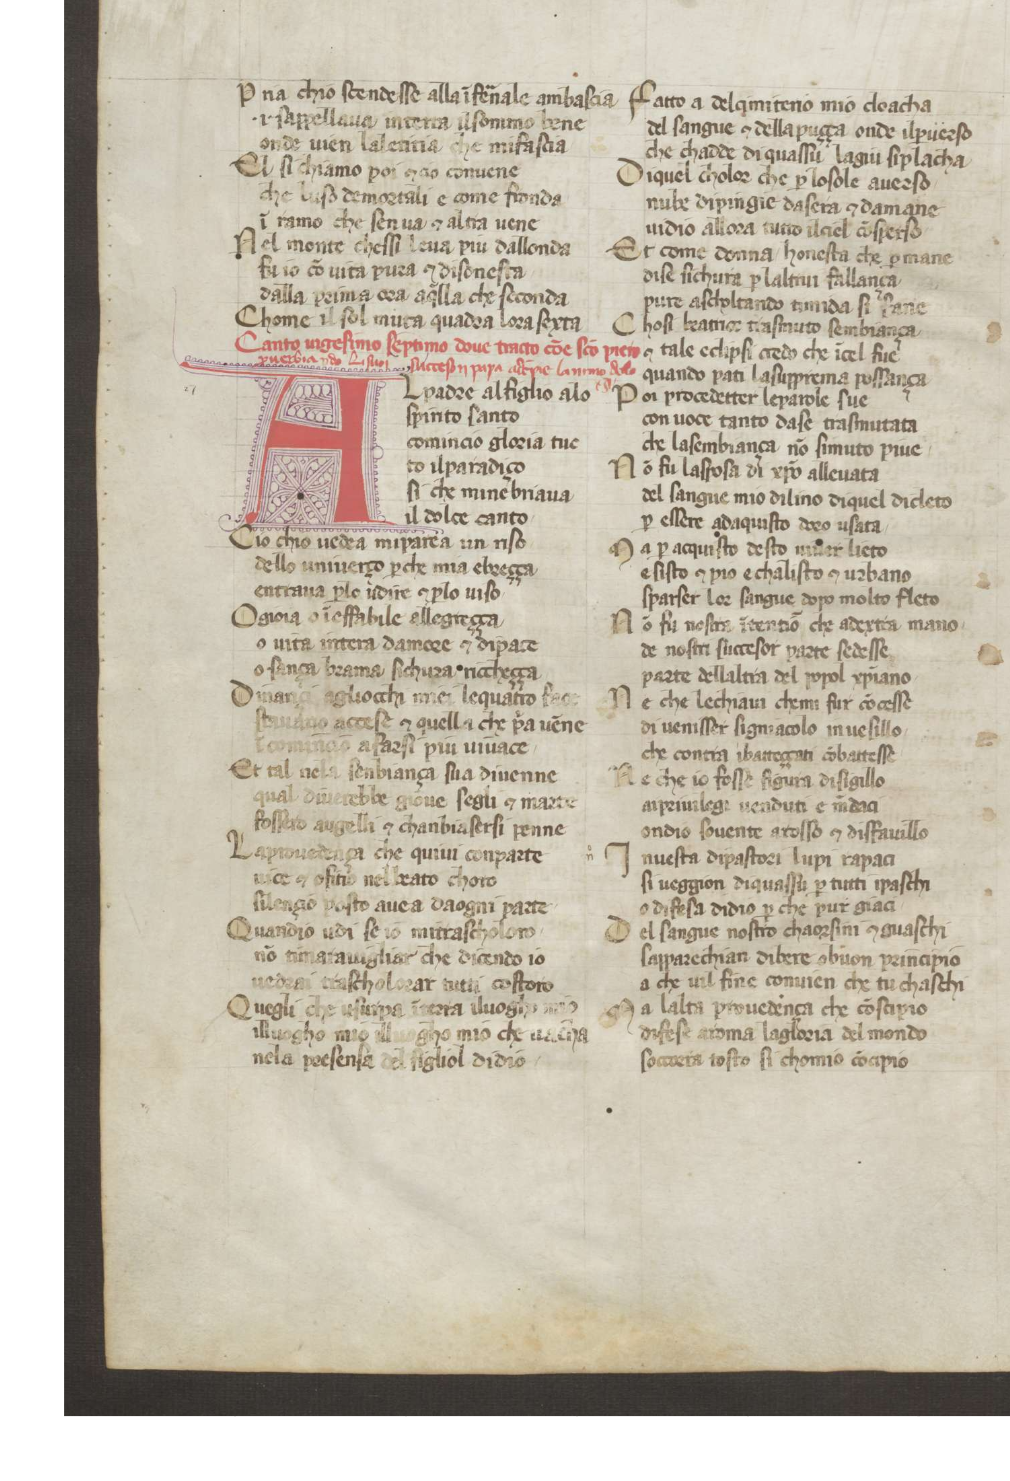 P na chio scendesse alla ĩfẽnale ambascia
r sappellaua interra ilsommo bene
onde uien laletitia che mifascia
El si chiamo poi ⁊ cio conuene
che luso demortali e come fronda
ĩ ramo che sen ua ⁊ altra uene
Nel monte chessi leua piu dallonda
fu io cõ uita pura ⁊ disonesta
dalla prima ora aq̃lla che seconda
Chome il sol muta quadra lora sexta
Canto uigesimo septimo doue tracto cõe scõ pieto
Lpadre alfiglio alo
spirito santo
comincio gloria tuc
to ilparadiço
si che minebriaua
il dolce canto
Cio chio uedea miparea un riso
dello uniuerço ꝑche mia ebreçça
entraua ꝑlo ũdire ⁊ ꝑlo uiso
O gioia o ĩeffabile allegreçça
o uita intera damore ⁊ dipace
o sança brama sichura ricchecça
Dinançi agliocchi miei lequattro face
stauano accese ⁊ quella che pͥa uẽne
ĩcomincio afarsi piu uiuace
Et tal nela senbiança sua diuenne
qual diuerebbe gioue segli ⁊ marte
fossero augelli ⁊ chanbiasersi penne
Laprouedença che quiui conparte
uice ⁊ ofitio nelbeato choro
silençio posto auea daogni parte
Quandio udi se io mitrascholoro
nõ timarauigliar che dicendo io
uedrai trascholorar tutti costoro
Quegli che usurpa ĩterra illuogho mio
illuogho mio illuogho mio che uacha
nela presensa del figliol didio
Fatto a delcimiterio mio cloacha
del sangue ⁊ dellapuçça onde ilꝑuerso
che chadde diquassu lagiu siplacha
Diquel cholor che ꝑ losole auerso
nube dipingie dasera ⁊ damane
uidio allora tutto ilciel cõsperso
Et come donna honesta che ꝑmane
dise sichura ꝑ laltrui fallança
pure ascholtando timida si fane
Chosi beatrice trasmuto sembiança
⁊ tale eclipsi credo che ĩciel fue
quando pati lasupprema possança
Poi procedetter leparole sue
con uoce tanto dase trasmutata
che lasembiança nõ simuto piue
Nõ fu lasposa di xp̃o alleuata
del sangue mio dilino diquel dicleto
ꝑ essere adaquisto doro usata
Ma ꝑ acquisto desto uiuer lieto
e sisto ⁊ pio e chalisto ⁊ urbano
sparser lor sangue dopo molto fleto
Nõ fu nostra ĩtentiõ che adextra mano
de nostri succesor parte sedesse
parte dellaltra del popol xp̃iano
Ne che lechiaui chemi fur cõcesse
di uenisser signacolo in uesillo
che contra ibatteççati cõbattesse
Ne che io fosse figura disigillo
aipriuilegi uenduti e mẽdaci
ondio souente arosso ⁊ disfauillo
Inuesta dipastori lupi rapaci
si ueggion diquassu ꝑ tutti ipaschi
o difesa didio ꝑ che pur giaci
Del sangue nostro chaorsini ⁊ guaschi
sapparechian dibere o buon principio
a che uil fine conuien che tu chaschi
Ma lalta prouedẽça che cõscipio
difese aroma lagloria del mondo
soccorra tosto si chomio cõcipio